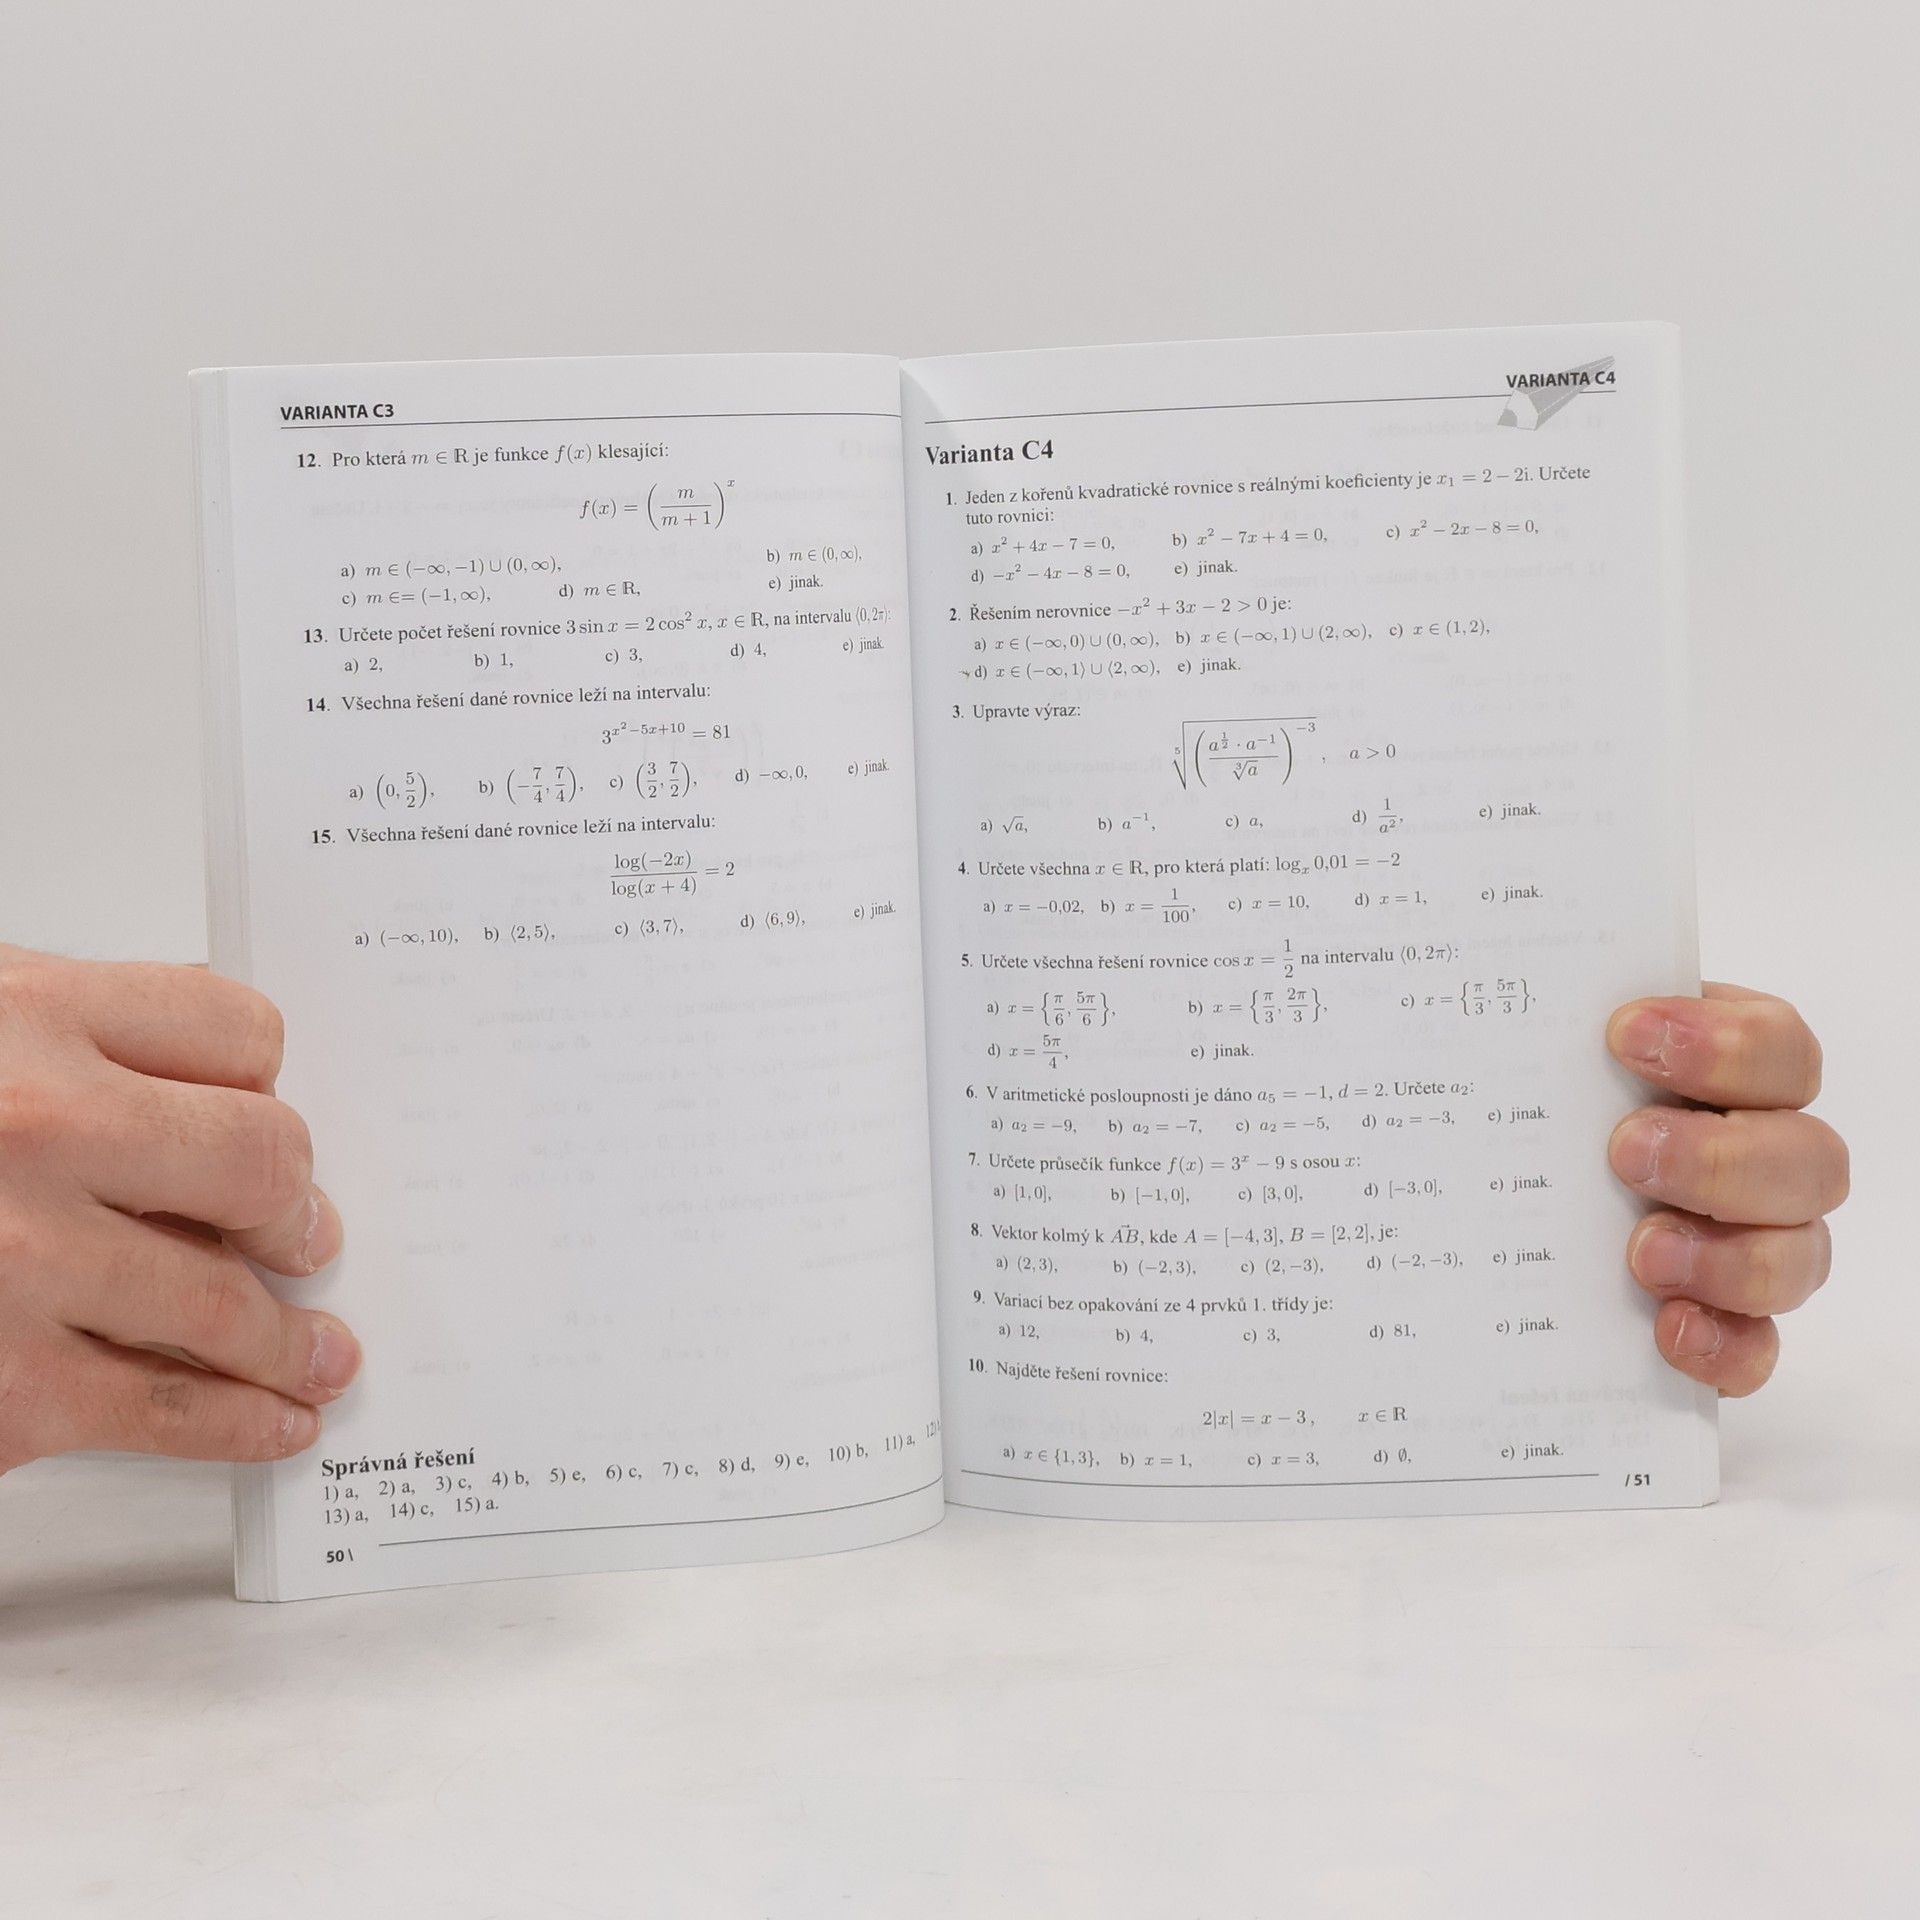 VARIANTA C3
12. Pro která m ∈ ℝ je funkce f(x) klesající:
f(x) = (m/(m + 1))^x
a) m ∈ (−∞, −1) ∪ (0, ∞), b) m ∈ (0, ∞),
c) m ∈= (−1, ∞), d) m ∈ ℝ, e) jinak.
13. Určete počet řešení rovnice 3 sin x = 2 cos² x, x ∈ ℝ, na intervalu ⟨0, 2π⟩:
a) 2, b) 1, c) 3, d) 4, e) jinak.
14. Všechna řešení dané rovnice leží na intervalu:
3^(x²−5x+10) = 81
a) (0, 5/2), b) (−7/4, 7/4), c) (3/2, 7/2), d) −∞, 0, e) jinak.
15. Všechna řešení dané rovnice leží na intervalu:
log(−2x)/log(x + 4) = 2
a) (−∞, 10), b) ⟨2, 5⟩, c) ⟨3, 7⟩, d) ⟨6, 9⟩, e) jinak.
Správná řešení
1) a, 2) a, 3) c, 4) b, 5) e, 6) c, 7) c, 8) d, 9) e, 10) b, 11) a, 12)
13) a, 14) c, 15) a.
50 \
VARIANTA C4
Varianta C4
1. Jeden z kořenů kvadratické rovnice s reálnými koeficienty je x₁ = 2 − 2i. Určete
tuto rovnici:
a) x² + 4x − 7 = 0, b) x² − 7x + 4 = 0, c) x² − 2x − 8 = 0,
d) −x² − 4x − 8 = 0, e) jinak.
2. Řešením nerovnice −x² + 3x − 2 > 0 je:
a) x ∈ (−∞, 0) ∪ (0, ∞), b) x ∈ (−∞, 1) ∪ (2, ∞), c) x ∈ (1, 2),
d) x ∈ (−∞, 1⟩ ∪ ⟨2, ∞), e) jinak.
3. Upravte výraz:
⁵√((a^(1/2) · a^(−1))/∛a)^(−3), a > 0
a) √a, b) a⁻¹, c) a, d) 1/a², e) jinak.
4. Určete všechna x ∈ ℝ, pro která platí: logₓ 0,01 = −2
a) x = −0,02, b) x = 1/100, c) x = 10, d) x = 1, e) jinak.
5. Určete všechna řešení rovnice cos x = 1/2 na intervalu ⟨0, 2π⟩:
a) x = {π/6, 5π/6}, b) x = {π/3, 2π/3}, c) x = {π/3, 5π/3},
d) x = 5π/4, e) jinak.
6. V aritmetické posloupnosti je dáno a₅ = −1, d = 2. Určete a₂:
a) a₂ = −9, b) a₂ = −7, c) a₂ = −5, d) a₂ = −3, e) jinak.
7. Určete průsečík funkce f(x) = 3ˣ − 9 s osou x:
a) [1, 0], b) [−1, 0], c) [3, 0], d) [−3, 0], e) jinak.
8. Vektor kolmý k A⃗B, kde A = [−4, 3], B = [2, 2], je:
a) (2, 3), b) (−2, 3), c) (2, −3), d) (−2, −3), e) jinak.
9. Variací bez opakování ze 4 prvků 1. třídy je:
a) 12, b) 4, c) 3, d) 81, e) jinak.
10. Najděte řešení rovnice:
2|x| = x − 3, x ∈ ℝ
a) x ∈ {1, 3}, b) x = 1, c) x = 3, d) ∅, e) jinak.
/ 51